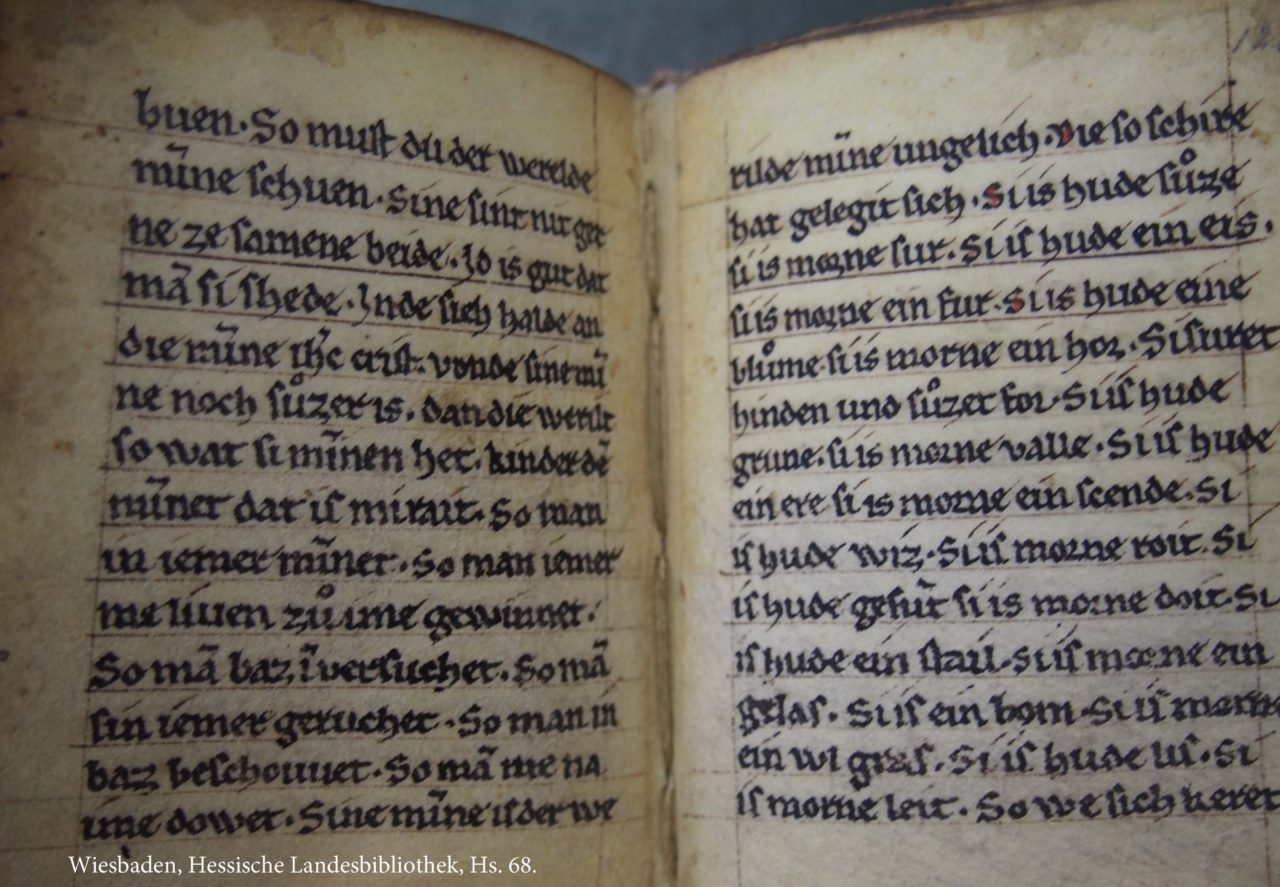 buen · So muſt du der werelde
mīne ſchuen · Sine ſint nit ger
ne ze ſamene beide · Id is gut dat
mā ſi ſhede · Inde ſich halde an
die mīne ih̄c criſt · vonde ſine mī
ne noch ſuͦzer is · dan die werilt
ſo wat ſi mīnen het · kinder dē
mīnet dat iſ mirait · So man
in iemer mīnet · So man iemer
me liuen zuͦ ime gewinnet ·
So mā baz ī verſuchet · So mā
ſin iemer geruchet · So man in
baz beſchouuet · So mā me na
ime dowet · Sine mīne iſ der we
rilde mīne ungelich · Die ſo ſchire
hat gelegit ſich · Si is hude ſuͦze
ſi is morne ſur · Si iſ hude ein eis ·
ſi is morne ein fur · Si is hude eine
bluͦme ſi is morne ein hoz · Si ſuret
hinden und ſuͦzet for · Si iſ hude
grune · ſi is morne valle · Si iſ hude
ein ere ſi is morne ein ſcende · Si
iſ hude wiz · Si iſ morne roit · Si
iſ hude geſūt ſi is morne doit · Si
iſ hude ein ſtail · Si iſ morne ein
gelaſ · Si iſ ein bom · Si iſ morne
ein wi graſ · Si iſ hude liſ · Si
iſ morne leit · So we ſich keret
Wiesbaden, Hessische Landesbibliothek, Hs. 68.